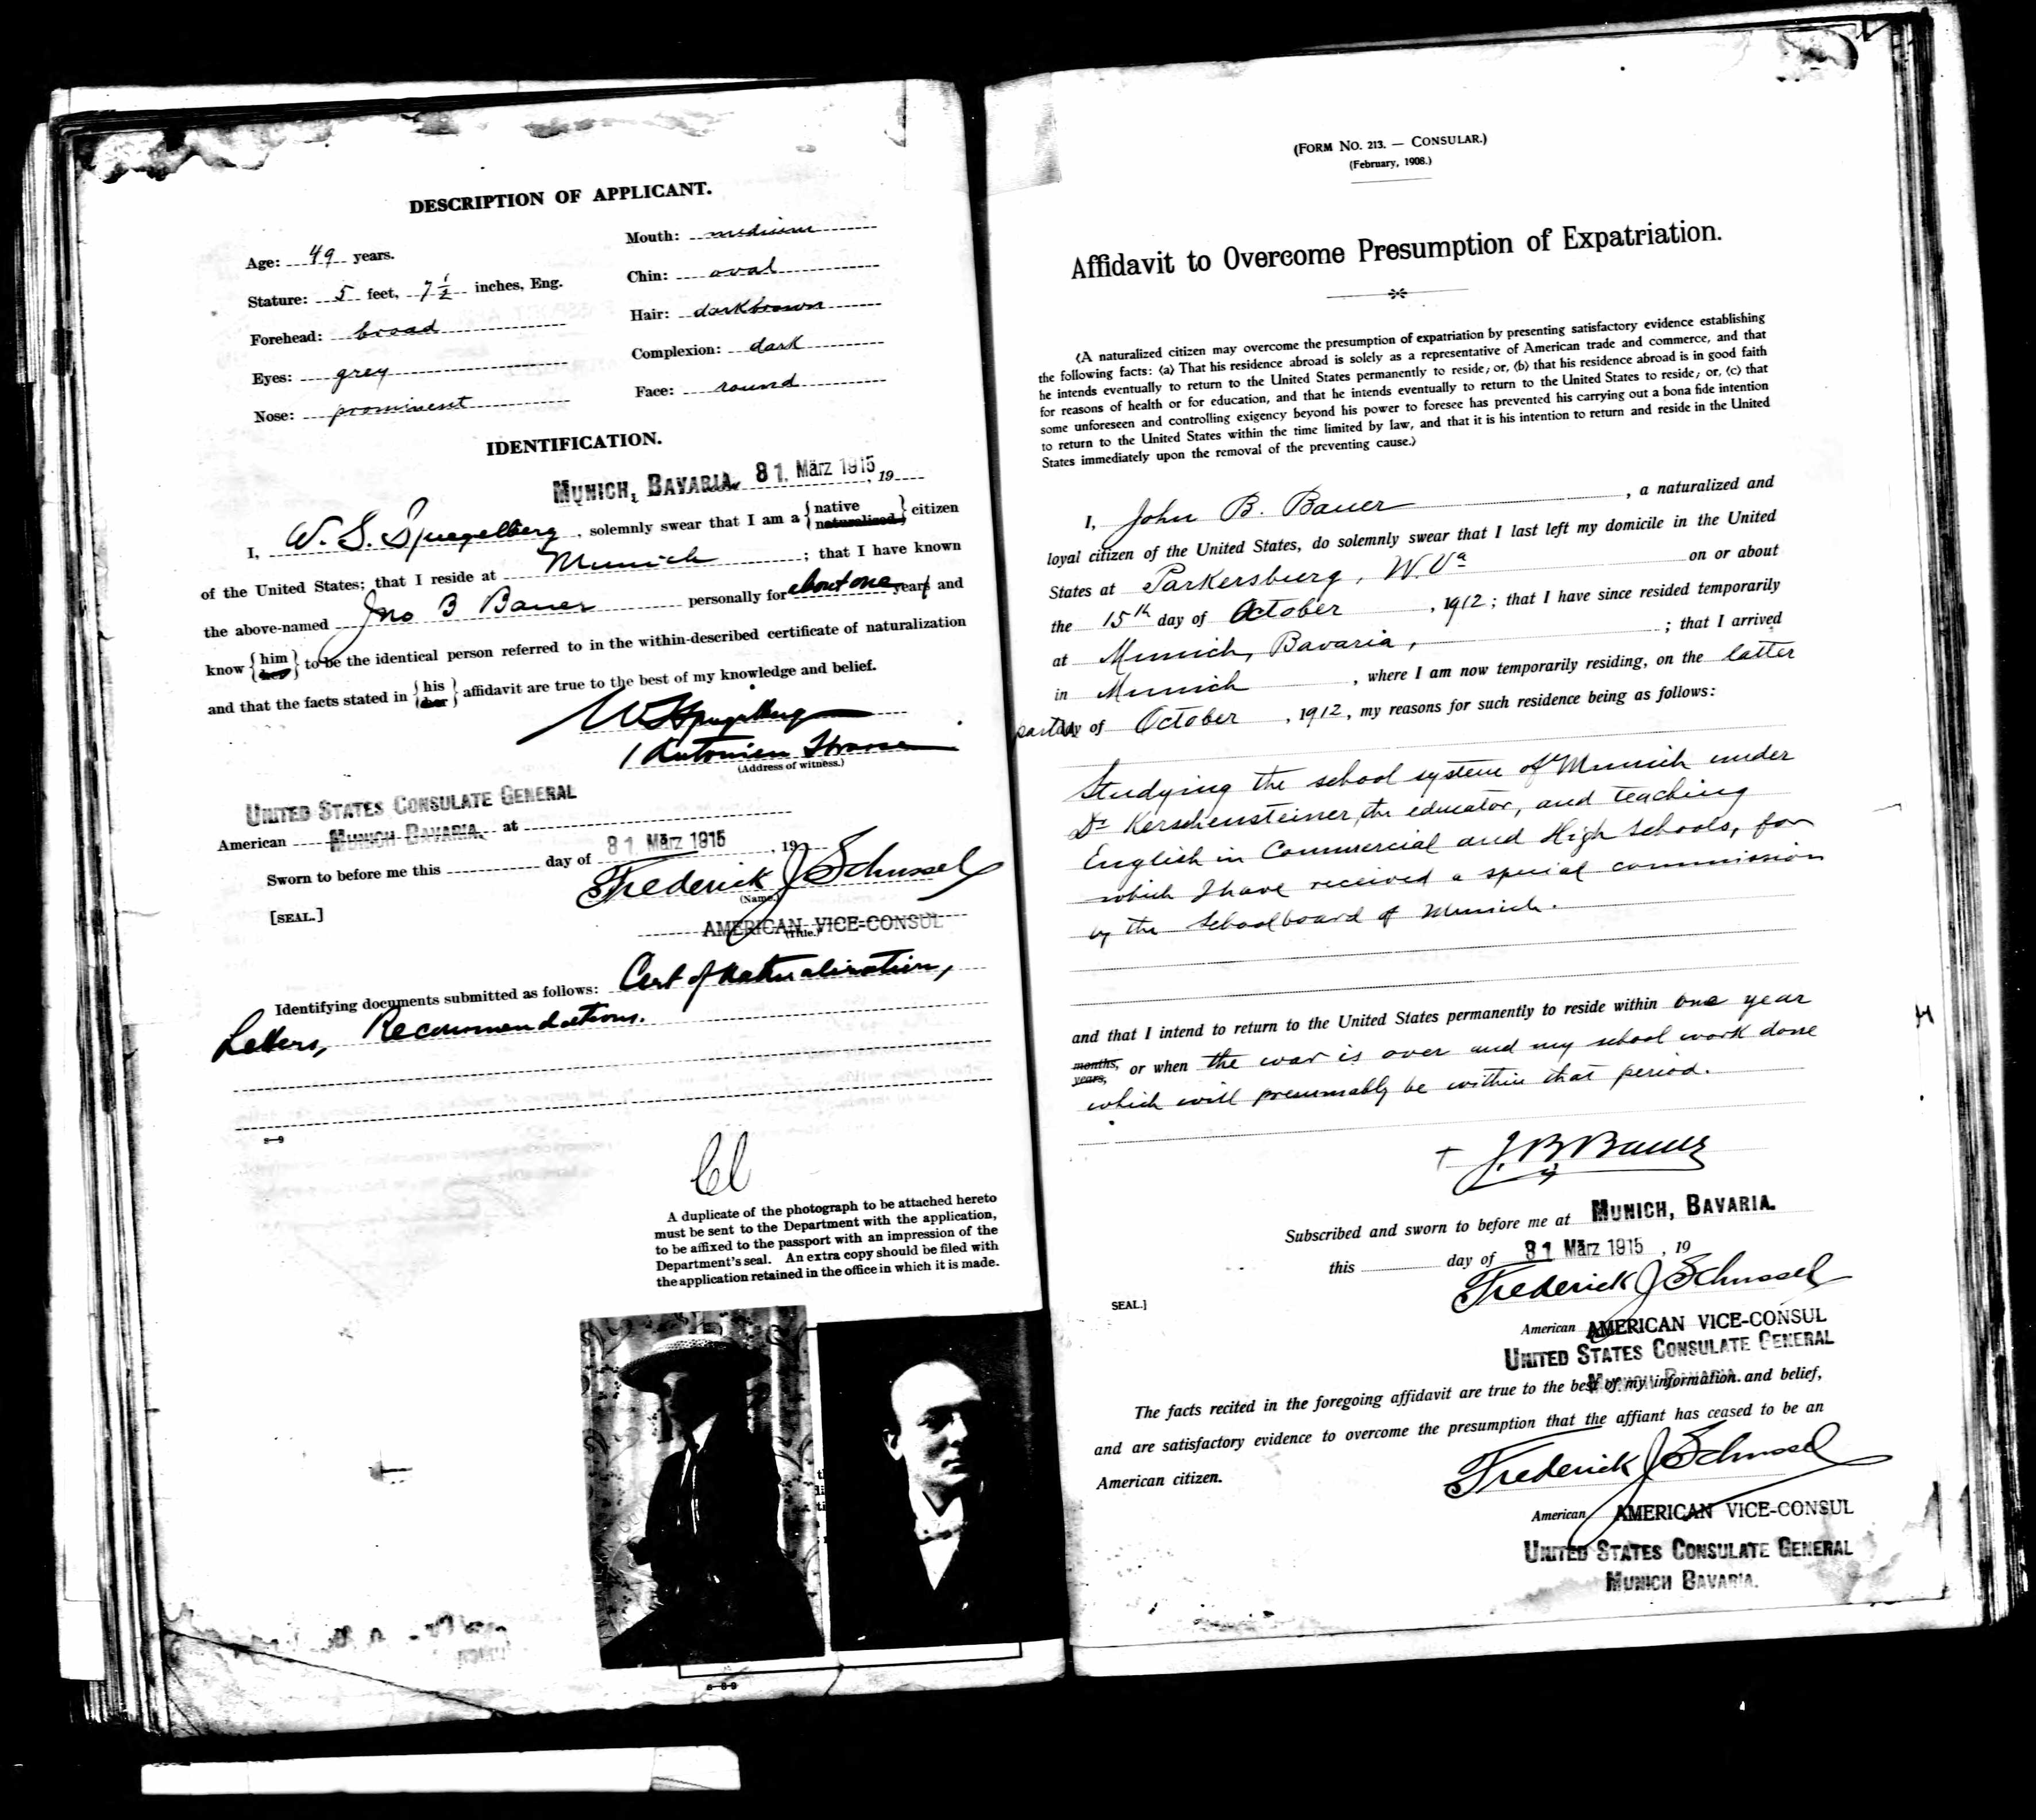 DESCRIPTION OF APPLICANT.
Age: 49 years.
Mouth: medium
Stature: 5 feet, 7 1/2 inches, Eng.
Chin: oval
Forehead: broad
Hair: dark brown
Eyes: grey
Complexion: dark
Nose: prominent
Face: round
IDENTIFICATION.
MUNICH, BAVARIA, 31. März 1915, 19
I, W. S. Spiegelberg, solemnly swear that I am a {native naturalized} citizen
of the United States; that I reside at Munich; that I have known
the above-named Jno B Bauer personally for about one years and
know {him her} to be the identical person referred to in the within-described certificate of naturalization
and that the facts stated in {his her} affidavit are true to the best of my knowledge and belief.
W S Spiegelberg
1 Antonien Strasse
(Address of witness.)
UNITED STATES CONSULATE GENERAL
American MUNICH BAVARIA. at
Sworn to before me this day of 31. März 1915, 19
Frederick J Schussel
(Name.)
[SEAL.]
AMERICAN VICE-CONSUL
(Title.)
Identifying documents submitted as follows: Cert of Naturalization,
Letters, Recommendations.
8—9
A duplicate of the photograph to be attached hereto
must be sent to the Department with the application,
to be affixed to the passport with an impression of the
Department's seal. An extra copy should be filed with
the application retained in the office in which it is made.
(FORM NO. 213. — CONSULAR.)
(February, 1908.)
Affidavit to Overcome Presumption of Expatriation.
(A naturalized citizen may overcome the presumption of expatriation by presenting satisfactory evidence establishing
the following facts: (a) That his residence abroad is solely as a representative of American trade and commerce, and that
he intends eventually to return to the United States permanently to reside; or, (b) that his residence abroad is in good faith
for reasons of health or for education, and that he intends eventually to return to the United States to reside; or, (c) that
some unforeseen and controlling exigency beyond his power to foresee has prevented his carrying out a bona fide intention
to return to the United States within the time limited by law, and that it is his intention to return and reside in the United
States immediately upon the removal of the preventing cause.)
I, John B. Bauer, a naturalized and
loyal citizen of the United States, do solemnly swear that I last left my domicile in the United
States at Parkersburg, W. Va on or about
the 15th day of October, 1912; that I have since resided temporarily
at Munich, Bavaria,; that I arrived
in Munich, where I am now temporarily residing, on the latter
part day of October, 1912, my reasons for such residence being as follows:
Studying the school system of Munich under
Dr Kerschensteiner, the educator, and teaching
English in Commercial and High Schools, for
which I have received a special commission
by the Schoolboard of Munich.
and that I intend to return to the United States permanently to reside within one year
months, years, or when the war is over and my school work done
which will presumably be within that period.
J. B. Bauer
Subscribed and sworn to before me at MUNICH, BAVARIA.
this day of 31 März 1915, 19
Frederick J Schussel
SEAL.]
American AMERICAN VICE-CONSUL
UNITED STATES CONSULATE GENERAL
MUNICH BAVARIA.
The facts recited in the foregoing affidavit are true to the best of my information and belief,
and are satisfactory evidence to overcome the presumption that the affiant has ceased to be an
American citizen.
Frederick J Schussel
American AMERICAN VICE-CONSUL
UNITED STATES CONSULATE GENERAL
MUNICH BAVARIA.